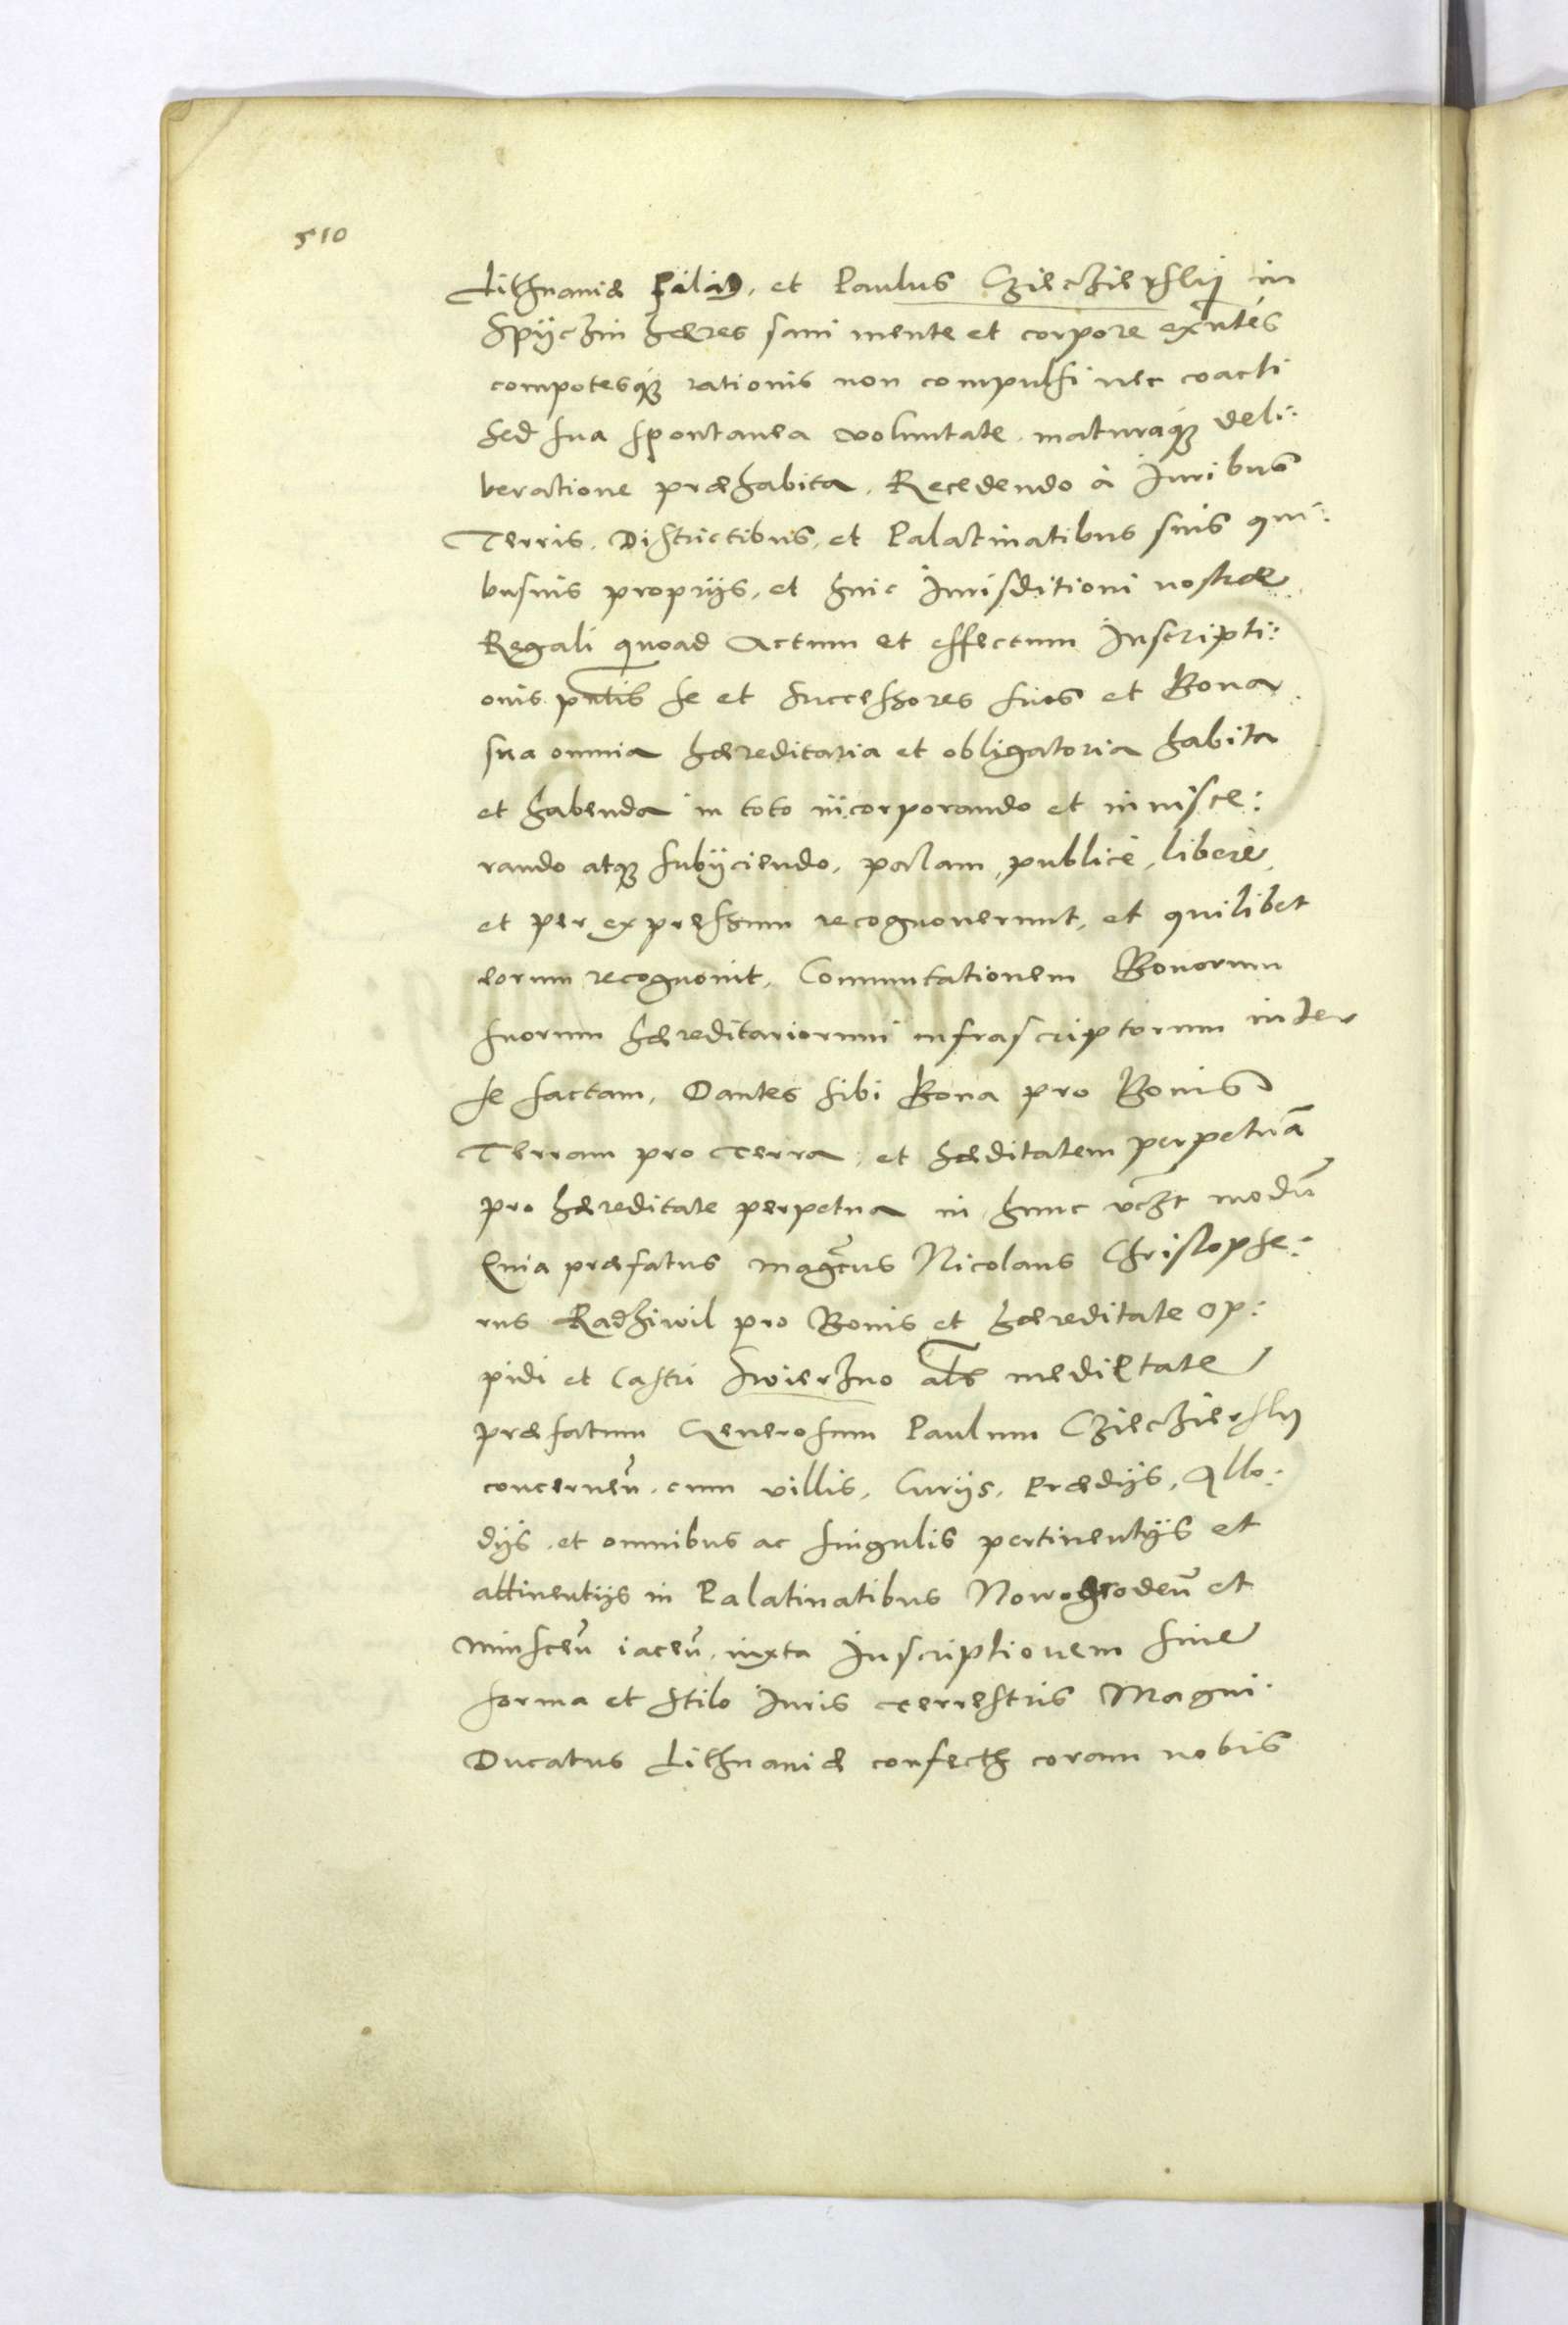 510
Lithuaniæ Palat, et Paulus Czieczierſkij in
Spÿczin hæres sani mente et corpore exñtes
compotesq́ꝫ rationis non compulſi nec coacti
Sed ſua ſpontanea voluntate maturaq́ꝫ deli:
beratione præhabita. Recedendo à Iuribus
Terris, Diſtrictibus, et Palatinatibus suis qui:
busuis proprijs, et huic Iurisditioni noſtræ
Regali quoad Actum et effectum Inſcripti:
onis pñtis ſe et Succeſsores ſuos et Bona
sua omnia hæreditaria et obligatoria habita
et habenda in toto incorporando et inuisce:
rando atqꝫ ſubÿciendo, palam, publicè, liberè,
et per expreſsum recognouerunt, et quilibet
eorum recognouit, Commutationem Bonorum
ſuorum hæreditariorum infraſcriptorum inter
ſe factam, Dantes ſibi Bona pro Bonis
Terram pro terra, et hæditatem perpetuã
pro hæreditate perpetua in hunc vcꝫt modũ
Quia præfatus magcus Nicolaus Chriſtophe:
rus Radziwil pro Bonis et hæreditate Op:
pidi et Caſtri Swierzno als medietate
præfatum Generoſum Paulum Czieczierſkÿ
concerneñ. cum villis, Curijs, Prædijs, Allo:
dijs, et omnibus ac ſingulis pertinentijs et
attinentijs in Palatinatibus Nowogrodeñ et
Minſceñ iaceñ, iuxta Inſcriptionem ſiue
forma et ſtilo Iuris terreſtris Magni
Ducatus Lithuaniæ confectꝫ coram nobis